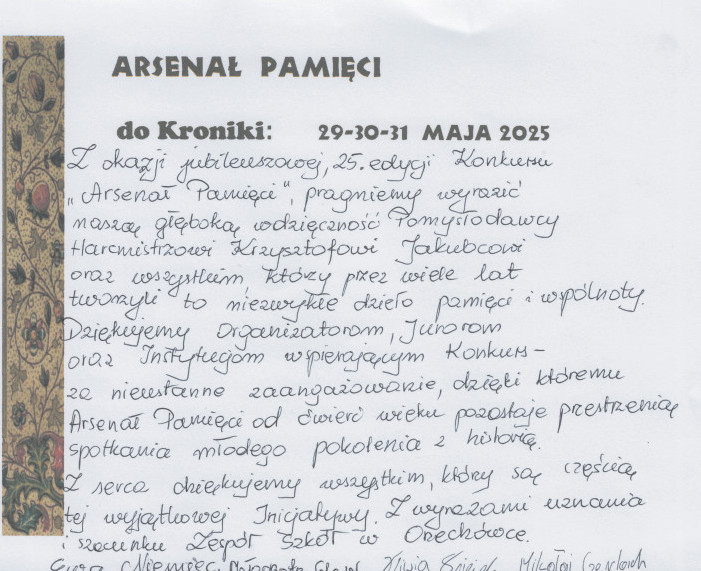 ARSENAŁ PAMIĘCI
do Kroniki: 29-30-31 MAJA 2025
Z okazji jubileuszowej, 25. edycji Konkursu
„Arsenał Pamięci", pragniemy wyrazić
naszą głęboką wdzięczność Pomysłodawcy
Harcmistrzowi Krzysztofowi Jakubcowi
oraz wszystkim, którzy przez wiele lat
tworzyli to niezwykłe dzieło pamięci i wspólnoty.
Dziękujemy Organizatorom, Jurorom
oraz Instytucjom wspierającym Konkurs –
za nieustanne zaangażowanie, dzięki któremu
Arsenał Pamięci od ćwierć wieku pozostaje przestrzenią
spotkania młodego pokolenia z historią.
Z serca dziękujemy wszystkim, którzy są częścią
tej wyjątkowej Inicjatywy. Z wyrazami uznania
i szacunku Zespół Szkół w Orzechówce.
Niemiec, Mikołaj